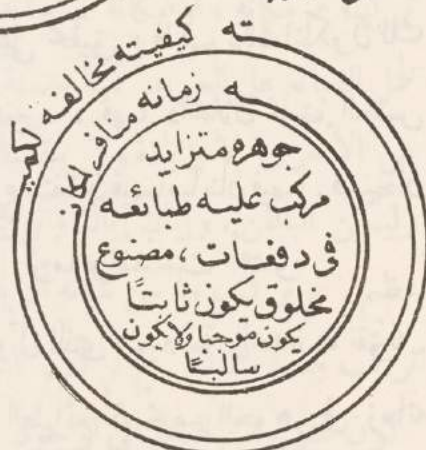 ته كيفيته مخالفه لكمي
ه زمانه منافر لمكان
جوهره متزايد
مركب عليه طبائعه
فى دفعات ، مصنوع
مخلوق يكون ثابتًا
يكون موجبا ولا يكون
سالبًا